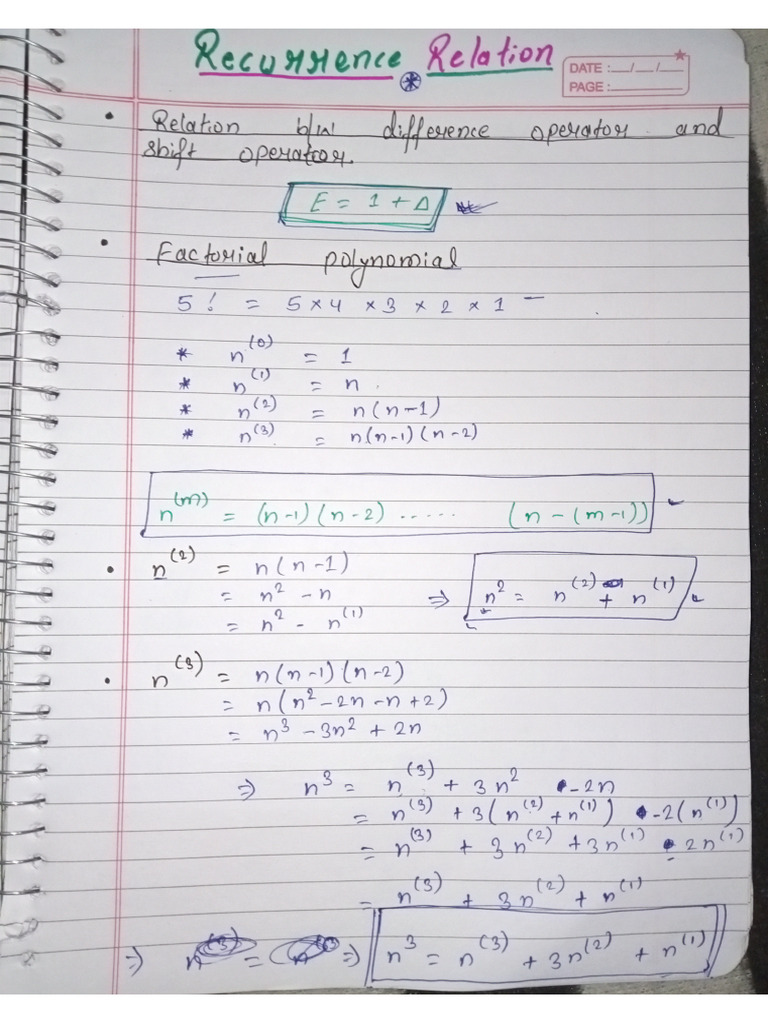 Recurrence Relation
DATE : __/__/__
PAGE : ______
• Relation b/w difference operator and
shift operator.
E = 1 + Δ
• Factorial polynomial
5! = 5 × 4 × 3 × 2 × 1
* n^(0) = 1
* n^(1) = n.
* n^(2) = n(n-1)
* n^(3) = n(n-1)(n-2)
n^(m) = (n-1)(n-2) ..... (n-(m-1))
• n^(2) = n(n-1)
= n² - n
= n² - n^(1) ⇒ n² = n^(2) + n^(1)
• n^(3) = n(n-1)(n-2)
= n(n² - 2n - n + 2)
= n³ - 3n² + 2n
⇒ n³ = n^(3) + 3n² - 2n
= n^(3) + 3(n^(2) + n^(1)) - 2(n^(1))
= n^(3) + 3n^(2) + 3n^(1) - 2n^(1)
= n^(3) + 3n^(2) + n^(1)
⇒ ⇒ n³ = n^(3) + 3n^(2) + n^(1)